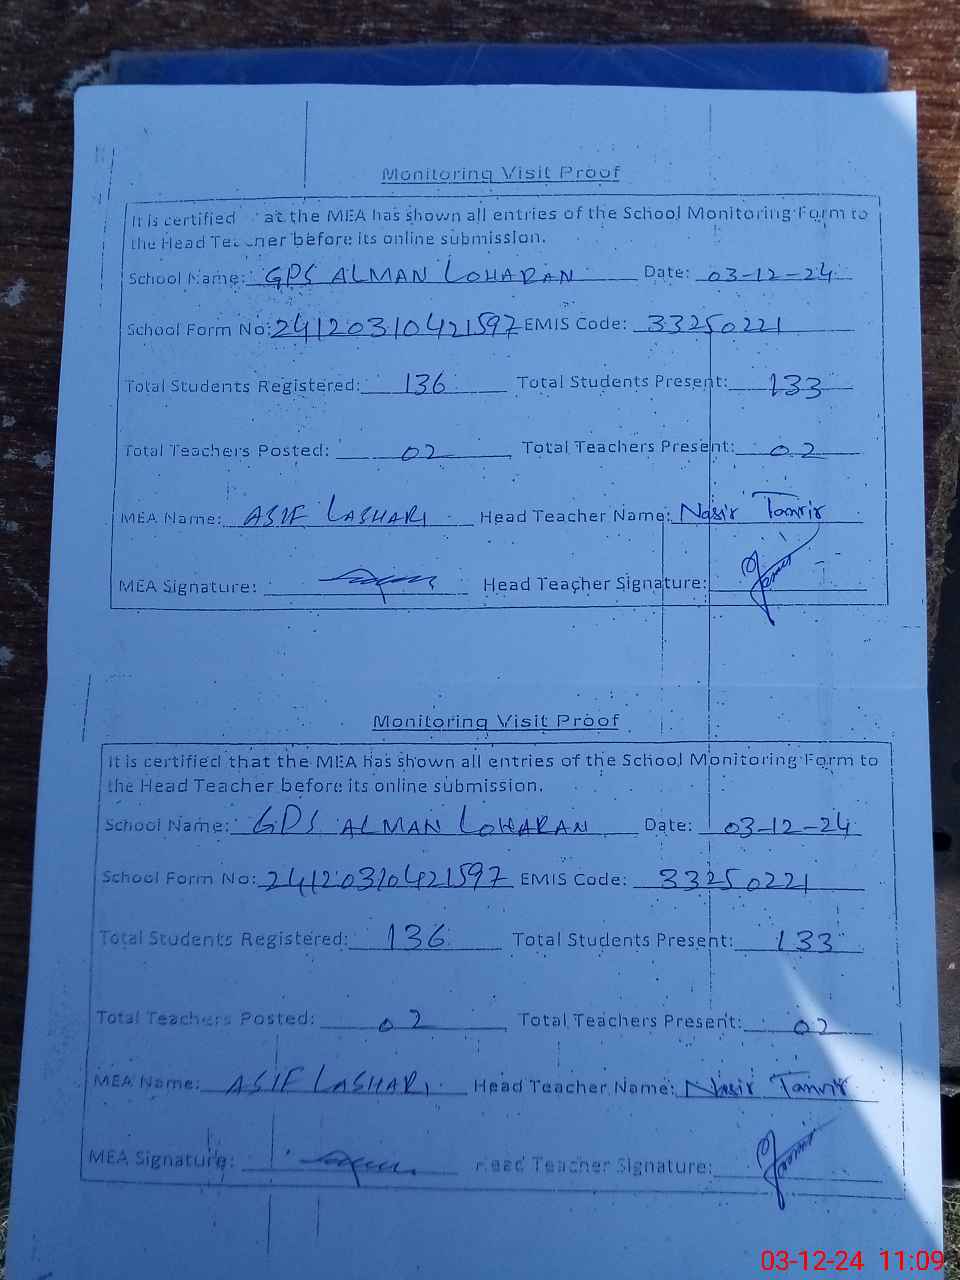 Monitoring Visit Proof
It is certified at the MEA has shown all entries of the School Monitoring Form to
the Head Teacher before its online submission.
School Name: GPS ALMAN LOHARAN Date: 03-12-24
School Form No: 24120310421597 EMIS Code: 33250221
Total Students Registered: 136 Total Students Present: 133
Total Teachers Posted: 02 Total Teachers Present: 02
MEA Name: ASIF LASHARI Head Teacher Name: Nasir Tanvir
MEA Signature: Head Teacher Signature:
Monitoring Visit Proof
It is certified that the MEA has shown all entries of the School Monitoring Form to
the Head Teacher before its online submission.
School Name: GPS ALMAN LOHARAN Date: 03-12-24
School Form No: 24120310421597 EMIS Code: 33250221
Total Students Registered: 136 Total Students Present: 133
Total Teachers Posted: 02 Total Teachers Present: 02
MEA Name: ASIF LASHARI Head Teacher Name: Nasir Tanvir
MEA Signature: Head Teacher Signature:
03-12-24 11:09